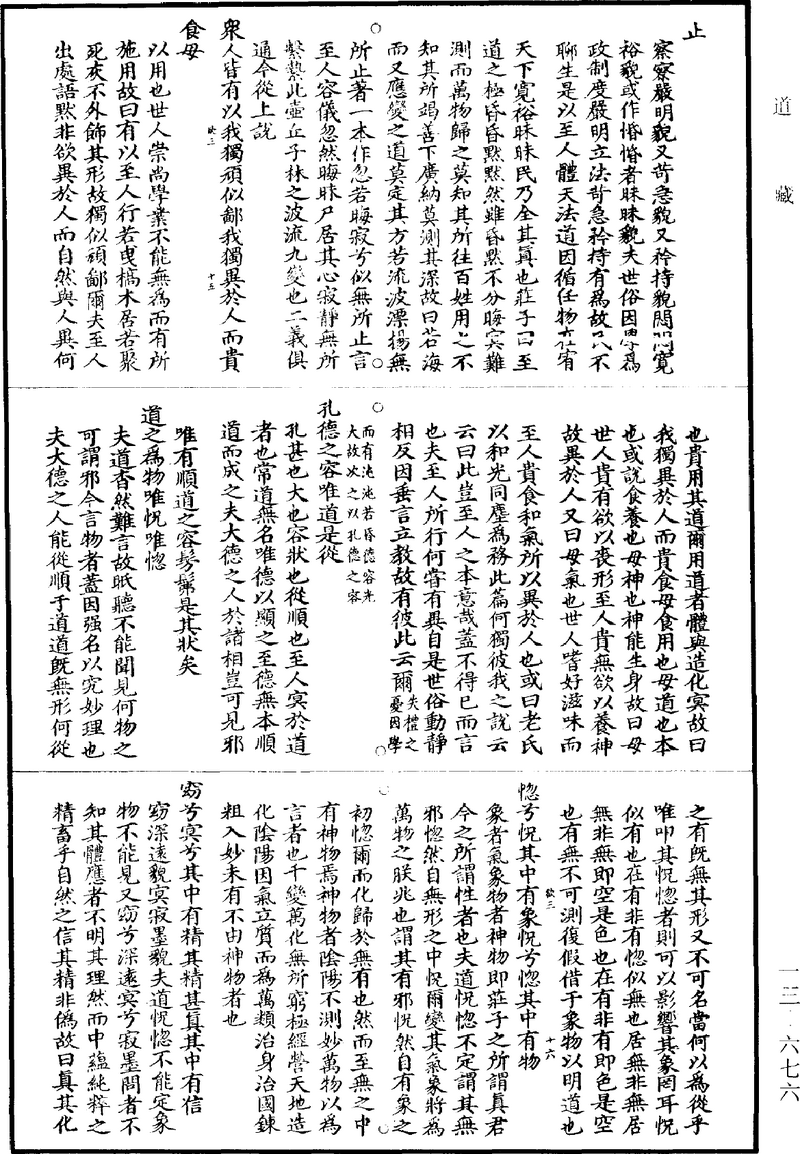 道藏
一三·六七六
止
察察嚴明貌又苛急貌又矜持貌悶悶寬
裕貌或作惛惛者昧昧貌夫世俗因學爲
政制度嚴明立法苛急矜持有爲故民不
聊生是以至人體天法道因循任物在宥
天下寬裕昧昧民乃全其眞也莊子曰至
道之極昏昏默默然雖昏默不分晦冥難
測而萬物歸之莫知其所往百姓用之不
知其所竭善下廣納莫測其深故曰若海
而又應變之道莫定其方若流波漂揚無
所止著一本作忽若晦寂兮似無所止言
至人容儀忽然晦昧尸居其心寂靜無所
繫縶此壺丘子林之波流九變也二義俱
通今從上說
衆人皆有以我獨頑似鄙我獨異於人而貴
欲三
十五
食母
以用也世人崇尚學業不能無爲而有所
施用故曰有以至人行若曳槁木居若聚
死灰不外飾其形故獨似頑鄙爾夫至人
出處語默非欲異於人而自然與人異何
也貴用其道爾用道者體與造化冥故曰
我獨異於人而貴食母食用也母道也本
也或說食養也母神也神能生身故曰母
世人貴有欲以喪形至人貴無欲以養神
故異於人又曰母氣也世人嗜好滋味而
至人貴食和氣所以異於人也或曰老氏
以和光同塵爲務此篇何獨彼我之說云
云曰此豈至人之本意哉蓋不得已而言
也夫至人所行何嘗有異自是世俗動靜
相反因垂言立教故有彼此云爾失禮之憂因學
而有沌沌若昏德容光大故次之以孔德之容
孔德之容唯道是從
孔甚也大也容狀也從順也至人冥於道
者也常道無名唯德以顯之至德無本順
道而成之夫大德之人於諸相豈可見邪
唯有順道之容髣髴是其狀矣
道之爲物唯怳唯惚
夫道杳然難言故眡聽不能聞見何物之
可謂邪今言物者蓋因强名以究妙理也
夫大德之人能從順于道道旣無形何從
之有旣無其形又不可名當何以爲從乎
唯叩其怳惚者則可以影響其象罔耳怳
似有也在有非有惚似無也居無非無居
無非無即空是色也在有非有即色是空
也有無不可測復假借于象物以明道也
欲三
十六
惚兮怳其中有象怳兮惚其中有物
象者氣象物者神物即莊子之所謂眞君
今之所謂性者也夫道怳惚不定謂其無
邪惚然自無形之中怳爾變其氣象將爲
萬物之朕兆也謂其有邪怳然自有象之
初惚爾而化歸於無有也然而至無之中
有神物焉神物者陰陽不測妙萬物以爲
言者也千變萬化無所窮極經營天地造
化陰陽因氣立質而爲萬類治身治國鍊
粗入妙未有不由神物者也
窈兮冥兮其中有精其精甚眞其中有信
窈深遠貌冥寂墨貌夫道怳惚不能定象
物不能見又窈兮深遠冥兮寂墨間者不
知其體應者不明其理然而中蘊純粹之
精畜乎自然之信其精非僞故曰眞其化